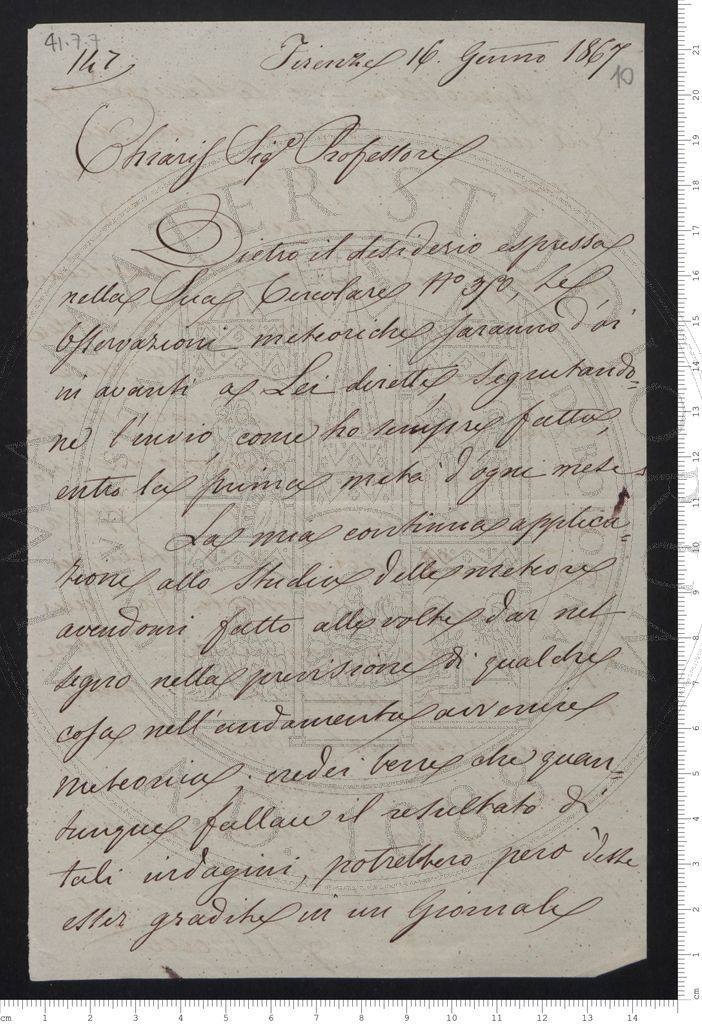 41.7.7
147
Firenze 16. Genno 1867
10
Chiaris Sigr Professore
Dietro il desiderio espresso
nella Sua Circolare No le
Osservazioni meteoriche saranno d'or
in avanti a Lei dirette, segnitando=
ne l'invio, come ho sempre fatto,
entro la prima metà d'ogni mese
La mia continua applica=
zione allo studio delle meteore
avendomi fatto alle volte dar nel
segno nella previsione di qualche
cosa nell'andamento avvenire
meteorico; credei bene che quan=
tunque fallace il resultato di
tali indagini, potrebbero però desse
esser gradite in un Giornale